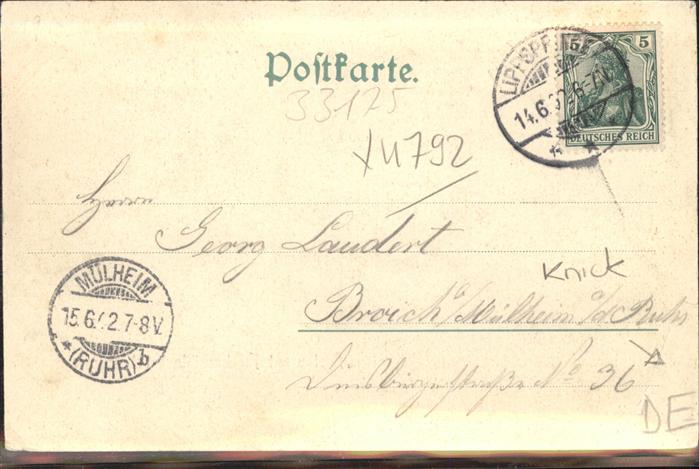 Postkarte.
33175
XU792
LIPPSPRINGE
14.6.02.6-7V.
* *
5
DEUTSCHES REICH
Herrn
Georg Laudert
Knick
Broich a/Mülheim a/d Ruhr
Duisburgerstraße No 36
DE
MÜLHEIM
15.6.02.7-8V.
*(RUHR) b